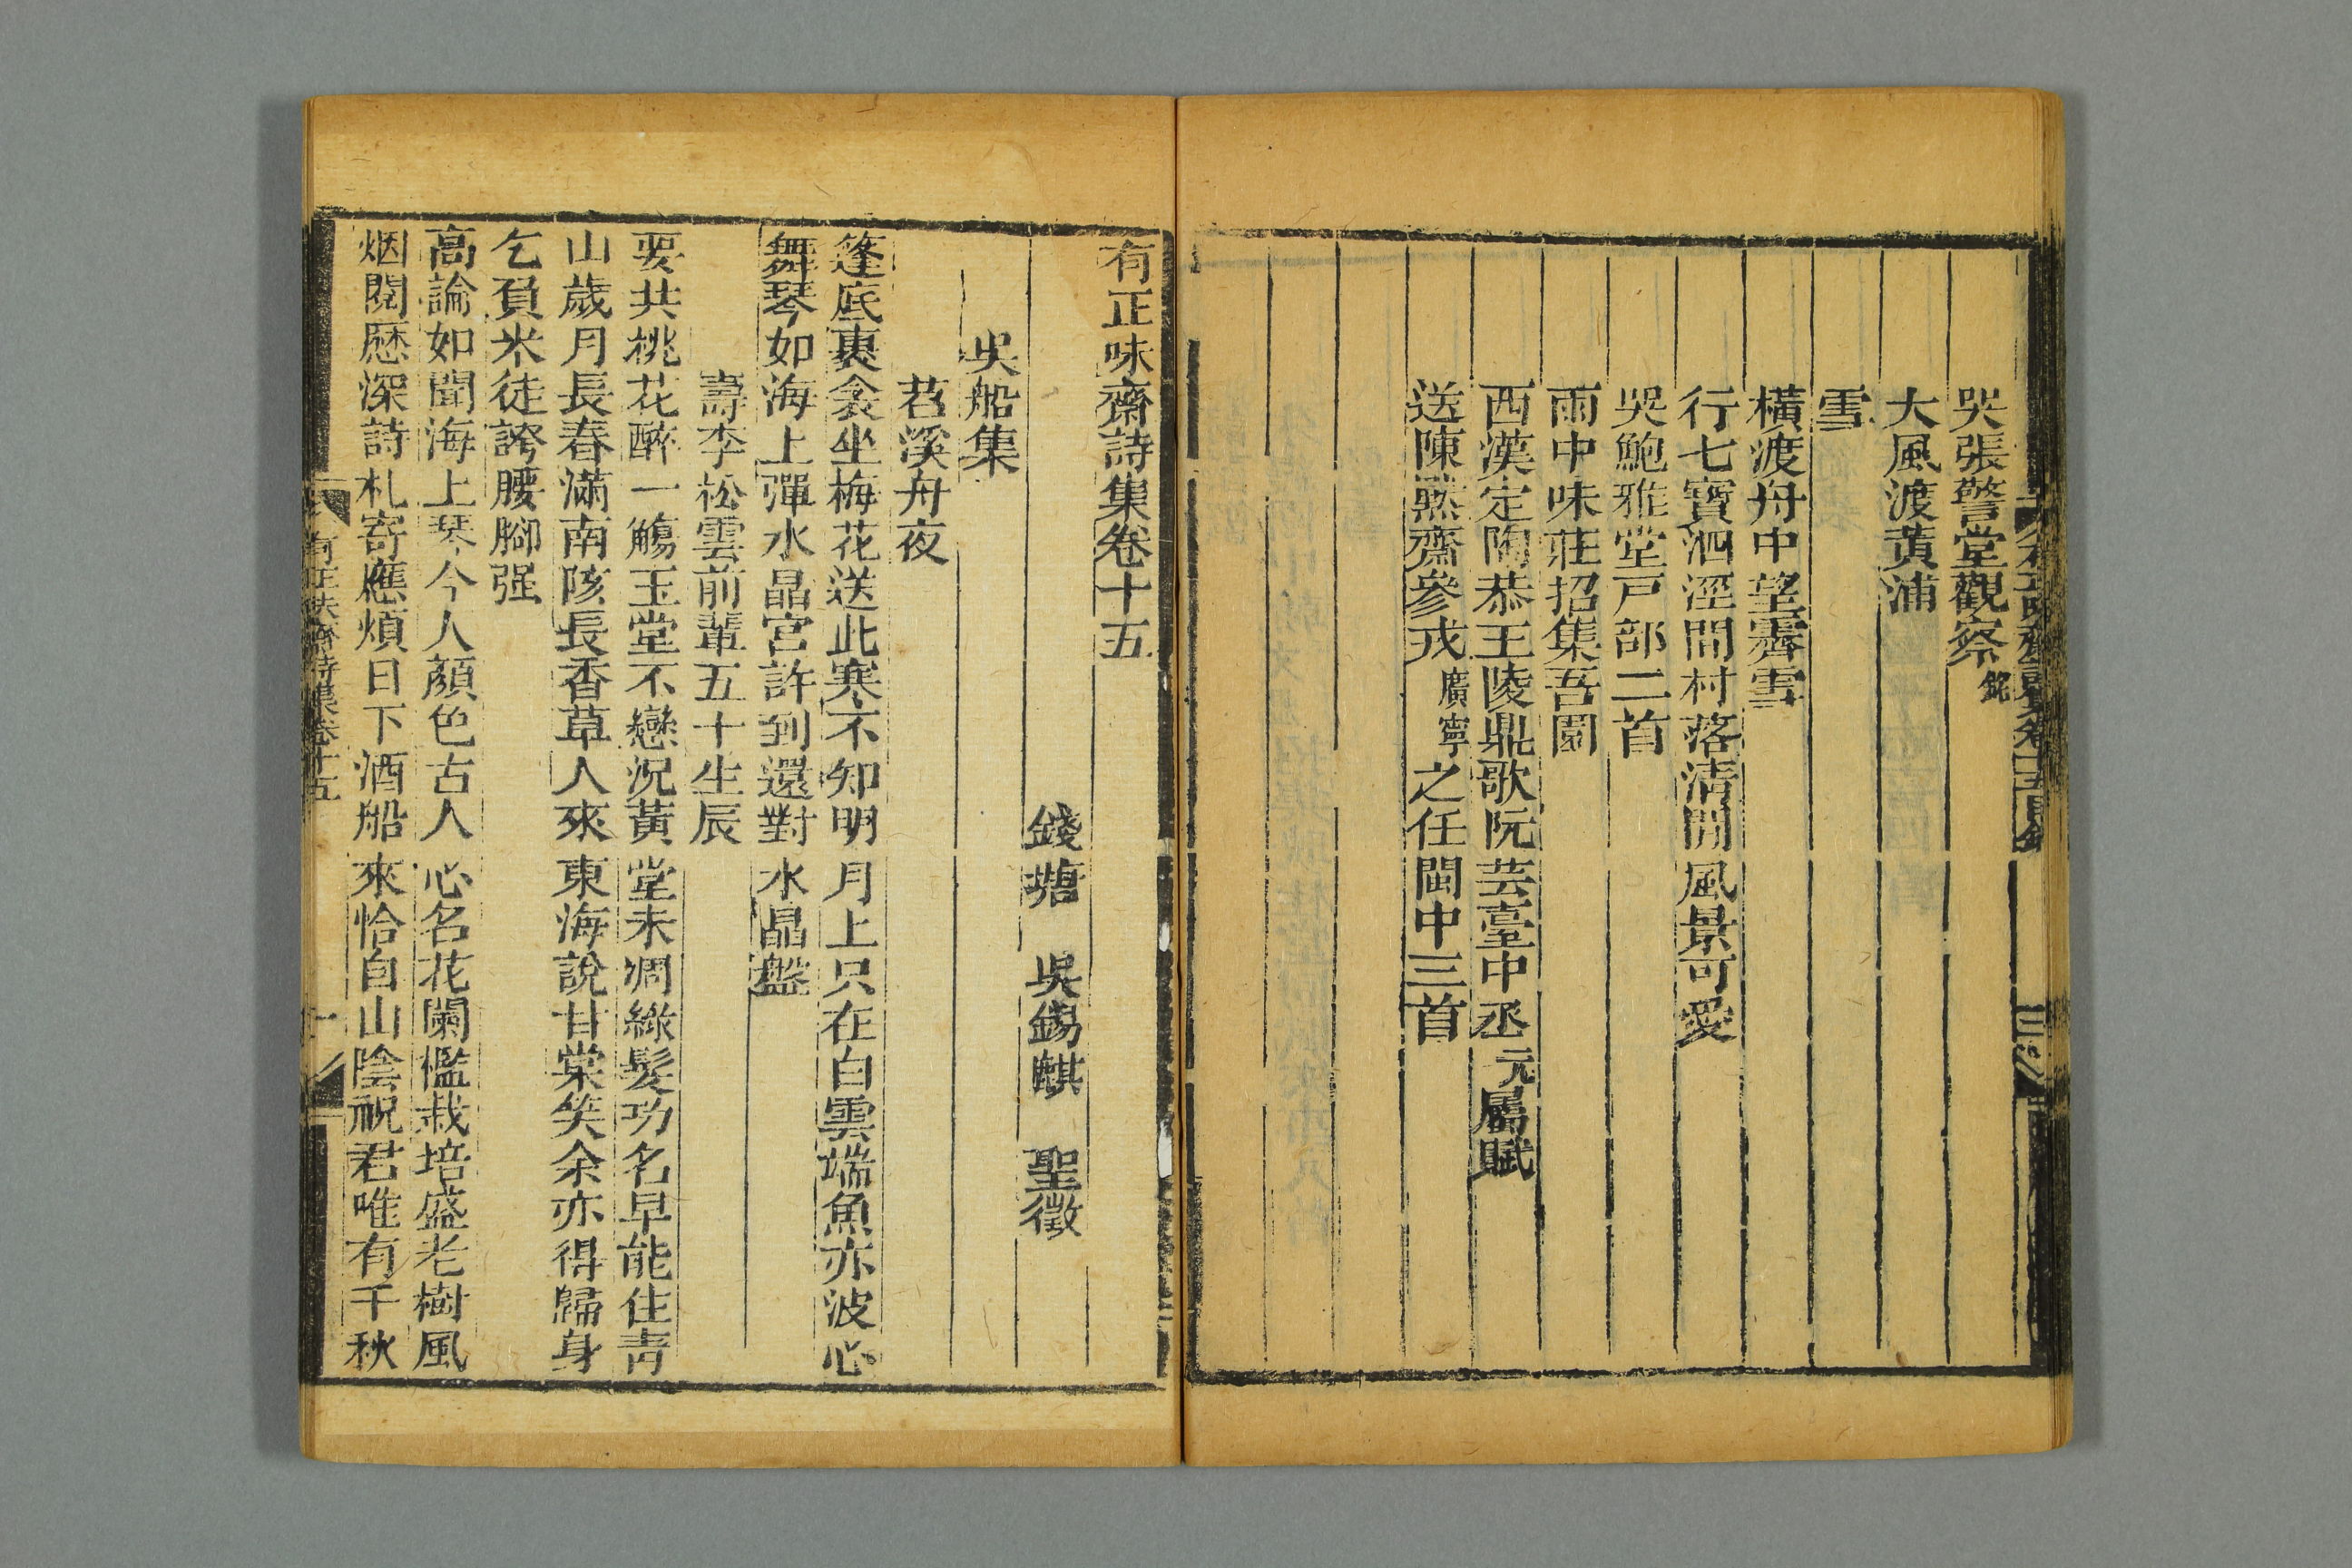 哭張警堂觀察銘
大風渡黃浦
雪
橫渡舟中望霽雪
行七寶泗涇間村落清閒風景可愛
哭鮑雅堂戸部二首
雨中味莊招集吾園
西漢定陶恭王陵鼎歌阮芸臺中丞元屬賦
送陳㷱齋參戎廣寧之任閩中三首
有正味齋詩集卷十五
錢塘 吳錫麒 聖徵
吳船集
苕溪舟夜
篷底裹衾坐梅花送此寒不知明月上只在白雲端魚亦波心
舞琴如海上彈水晶宮許到還對水晶盤
壽李松雲前輩五十生辰
要共桃花醉一觴玉堂不戀況黃堂未凋綠髮功名早能住靑
山歲月長春滿南陔長香草人來東海說甘棠笑余亦得歸身
乞負米徒誇腰腳强
高論如聞海上琴今人顏色古人心名花闌檻栽培盛老樹風
烟閱歷深詩札寄應煩日下酒船來恰自山陰祝君唯有千秋
有正味齋詩集卷十五 一